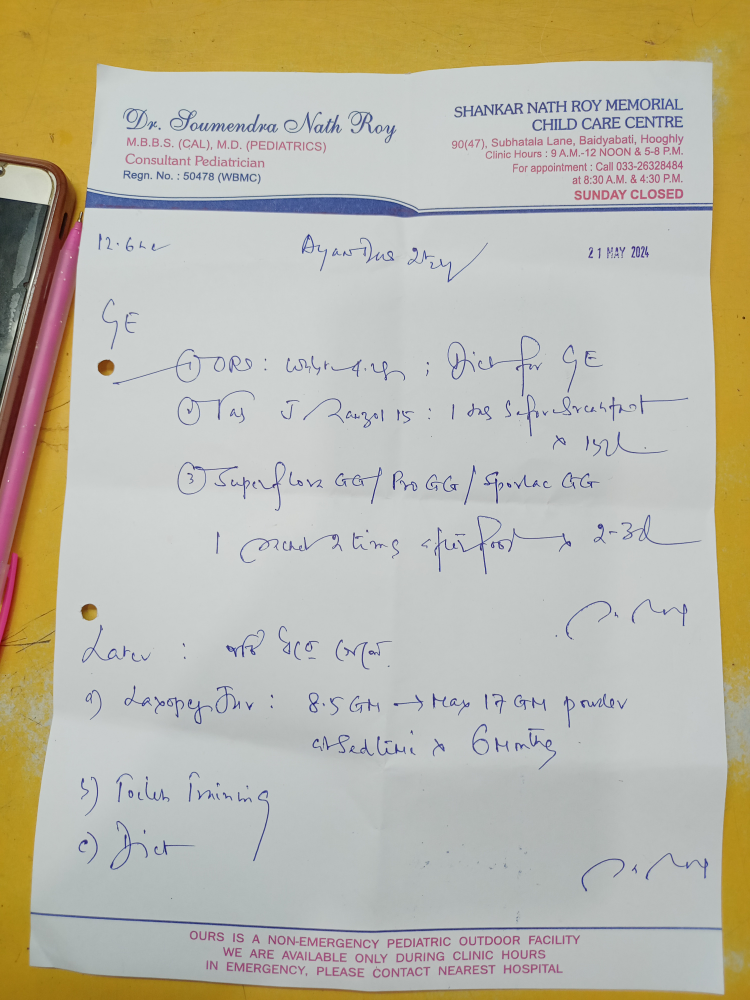 Dr. Soumendra Nath Roy
M.B.B.S. (CAL), M.D. (PEDIATRICS)
Consultant Pediatrician
Regn. No. : 50478 (WBMC)
SHANKAR NATH ROY MEMORIAL
CHILD CARE CENTRE
90(47), Subhatala Lane, Baidyabati, Hooghly
Clinic Hours : 9 A.M.-12 NOON & 5-8 P.M.
For appointment : Call 033-26328484
at 8:30 A.M. & 4:30 P.M.
SUNDAY CLOSED
Ayan Das
21 MAY 2024
GE
① ORS : ; Diet for GE
② Tab J 15 : 1 before breakfast
③ Superflora GG / Pro GG / Sporlac GG
1 sachet 2 times after food x 2-3d
Later :
a) : 8.5 GM → Max 17 GM powder
at bedtime x 6 Months
b) Toilet Training
c) Diet
OURS IS A NON-EMERGENCY PEDIATRIC OUTDOOR FACILITY
WE ARE AVAILABLE ONLY DURING CLINIC HOURS
IN EMERGENCY, PLEASE CONTACT NEAREST HOSPITAL